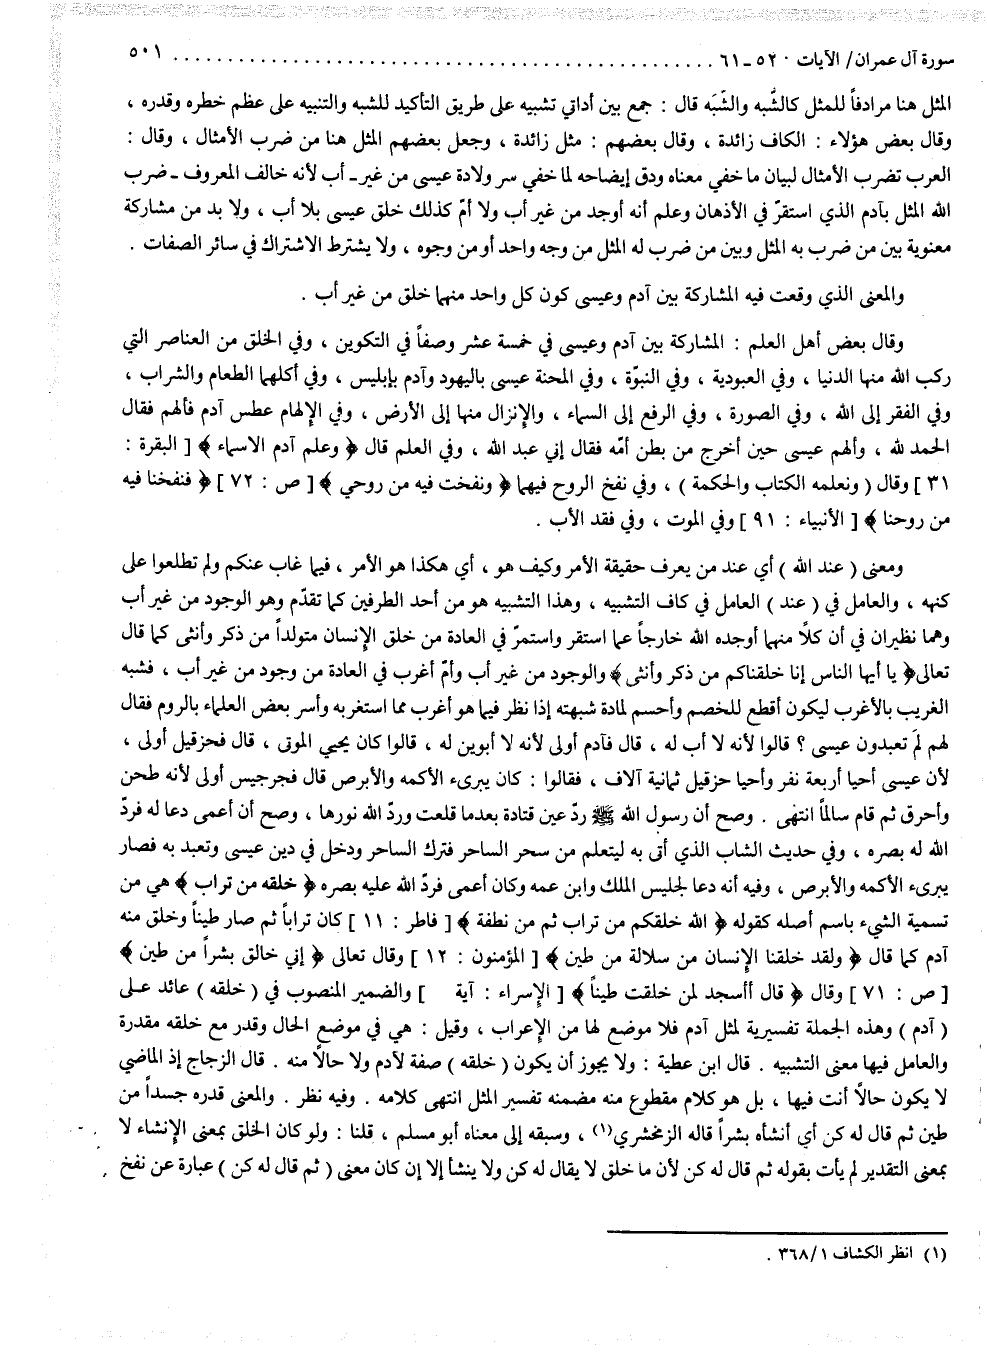 سورة آل عمران/ الآيات ٥٢ـ٦١ ............................................................ ٥٠١
المثل هنا مرادفاً للمثل كالشَّبه والشَّبَه قال : جمع بين أداتي تشبيه على طريق التأكيد للشبه والتنبيه على عظم خطره وقدره ،
وقال بعض هؤلاء : الكاف زائدة ، وقال بعضهم : مثل زائدة ، وجعل بعضهم المثل هنا من ضرب الأمثال ، وقال :
العرب تضرب الأمثال لبيان ما خفي معناه ودق إيضاحه لما خفي سر ولادة عيسى من غير ـ أب لأنه خالف المعروف ـ ضرب
الله المثل بآدم الذي استقرّ في الأذهان وعلم أنه أوجد من غير أب ولا أمّ كذلك خلق عيسى بلا أب ، ولا بد من مشاركة
معنوية بين من ضرب به المثل وبين من ضرب له المثل من وجه واحد أو من وجوه ، ولا يشترط الاشتراك في سائر الصفات .
والمعنى الذي وقعت فيه المشاركة بين آدم وعيسى كون كل واحد منهما خلق من غير أب .
وقال بعض أهل العلم : المشاركة بين آدم وعيسى في خمسة عشر وصفاً في التكوين ، وفي الخلق من العناصر التي
ركب الله منها الدنيا ، وفي العبودية ، وفي النبوّة ، وفي المحنة عيسى باليهود وآدم بإبليس ، وفي أكلهما الطعام والشراب ،
وفي الفقر إلى الله ، وفي الصورة ، وفي الرفع إلى السماء ، والإنزال منها إلى الأرض ، وفي الإلهام عطس آدم فألهم فقال
الحمد لله ، وألهم عيسى حين أخرج من بطن أمّه فقال إني عبد الله ، وفي العلم قال ﴿ وعلم آدم الاسماء ﴾ [ البقرة :
٣١ ] وقال ( ونعلمه الكتاب والحكمة ) ، وفي نفخ الروح فيهما ﴿ ونفخت فيه من روحي ﴾ [ ص : ٧٢ ] ﴿ فنفخنا فيه
من روحنا ﴾ [ الأنبياء : ٩١ ] وفي الموت ، وفي فقد الأب .
ومعنى ( عند الله ) أي عند من يعرف حقيقة الأمر وكيف هو ، أي هكذا هو الأمر ، فيما غاب عنكم ولم تطلعوا على
كنهه ، والعامل في ( عند ) العامل في كاف التشبيه ، وهذا التشبيه هو من أحد الطرفين كما تقدّم وهو الوجود من غير أب
وهما نظيران في أن كلًا منهما أوجده الله خارجاً عما استقر واستمرّ في العادة من خلق الإنسان متولداً من ذكر وأنثى كما قال
تعالى ﴿ يا أيها الناس إنا خلقناكم من ذكر وأنثى ﴾ والوجود من غير أب وأمّ أغرب في العادة من وجود من غير أب ، فشبه
الغريب بالأغرب ليكون أقطع للخصم وأحسم لمادة شبهته إذا نظر فيما هو أغرب مما استغربه وأسر بعض العلماء بالروم فقال
لهم لمَ تعبدون عيسى ؟ قالوا لأنه لا أب له ، قال فآدم أولى لأنه لا أبوين له ، قالوا كان يحيي الموتى ، قال فحزقيل أولى ،
لأن عيسى أحيا أربعة نفر وأحيا حزقيل ثمانية آلاف ، فقالوا : كان يبرىء الأكمه والأبرص قال فجرجيس أولى لأنه طحن
وأحرق ثم قام سالماً انتهى . وصح أن رسول الله ﷺ ردّ عين قتادة بعدما قلعت وردّ الله نورها ، وصح أن أعمى دعا له فردّ
الله له بصره ، وفي حديث الشاب الذي أتى به ليتعلم من سحر الساحر فترك الساحر ودخل في دين عيسى وتعبد به فصار
يبرىء الأكمه والأبرص ، وفيه أنه دعا لجليس الملك وابن عمه وكان أعمى فردّ الله عليه بصره ﴿ خلقه من تراب ﴾ هي من
تسمية الشيء باسم أصله كقوله ﴿ الله خلقكم من تراب ثم من نطفة ﴾ [ فاطر : ١١ ] كان تراباً ثم صار طيناً وخلق منه
آدم كما قال ﴿ ولقد خلقنا الإنسان من سلالة من طين ﴾ [ المؤمنون : ١٢ ] وقال تعالى ﴿ إني خالق بشراً من طين ﴾
[ ص : ٧١ ] وقال ﴿ قال أأسجد لمن خلقت طيناً ﴾ [ الإسراء : آية ] والضمير المنصوب في ( خلقه ) عائد على
( آدم ) وهذه الجملة تفسيرية لمثل آدم فلا موضع لها من الإعراب ، وقيل : هي في موضع الحال وقدر مع خلقه مقدرة
والعامل فيها معنى التشبيه . قال ابن عطية : ولا يجوز أن يكون ( خلقه ) صفة لآدم ولا حالًا منه . قال الزجاج إذ الماضي
لا يكون حالًا أنت فيها ، بل هو كلام مقطوع منه مضمنه تفسير المثل انتهى كلامه . وفيه نظر . والمعنى قدره جسداً من
طين ثم قال له كن أي أنشأه بشراً قاله الزمخشري(١) ، وسبقه إلى معناه أبو مسلم ، قلنا : ولو كان الخلق بمعنى الإنشاء لا
بمعنى التقدير لم يأت بقوله ثم قال له كن لأن ما خلق لا يقال له كن ولا ينشأ إلا إن كان معنى ( ثم قال له كن ) عبارة عن نفخ
(١) انظر الكشاف ٣٦٨/١ .